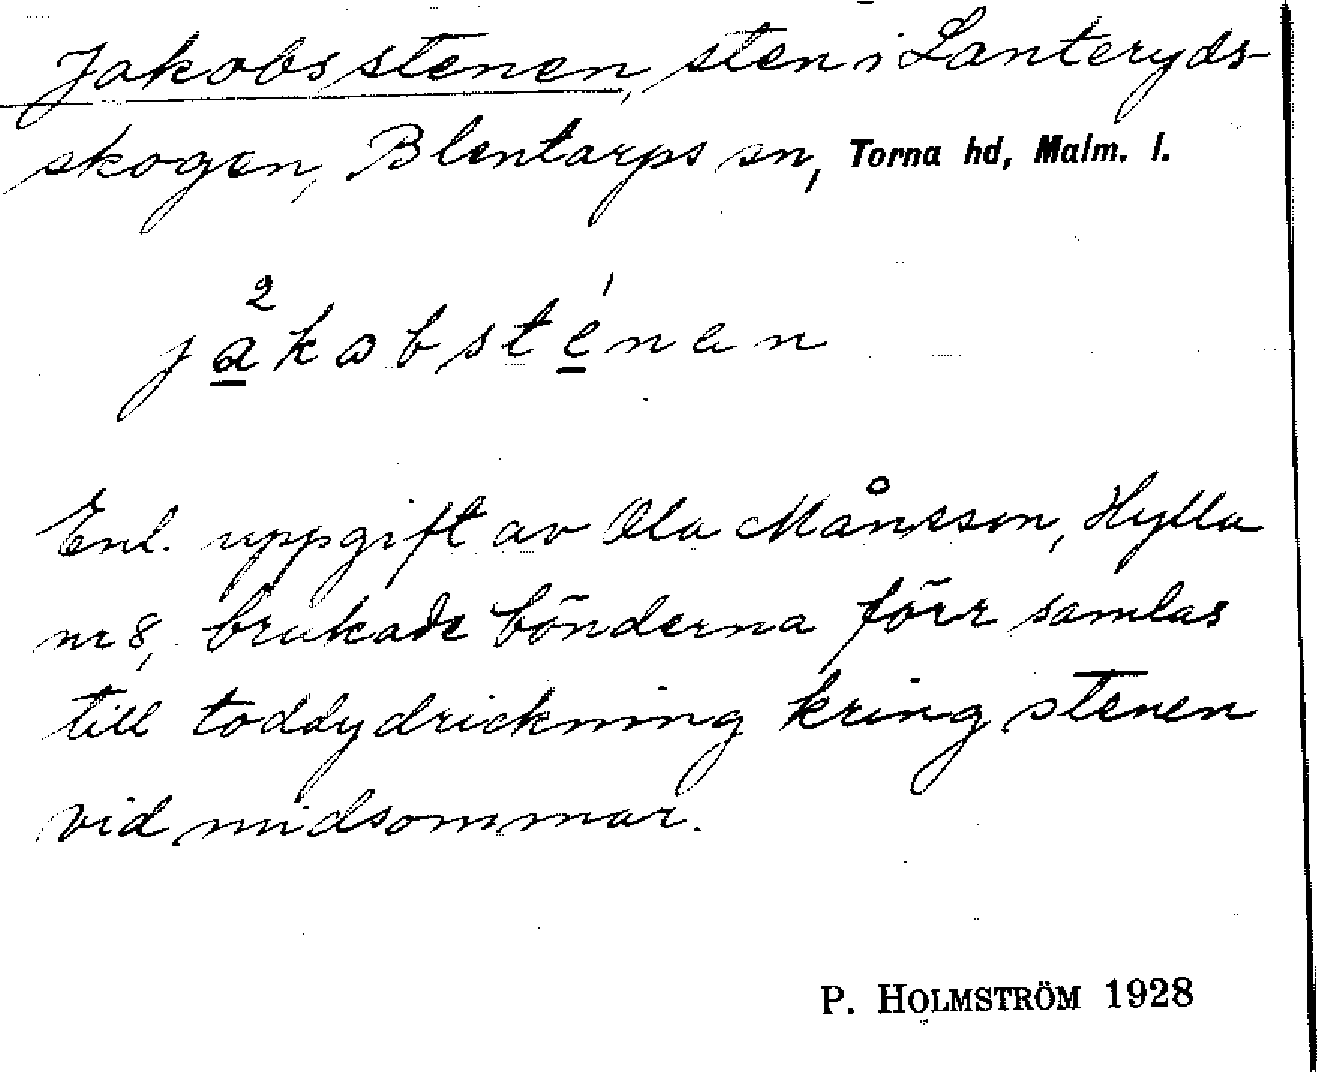 Jakobsstenen, sten i Lanteryds-
skogen, Blentarps sn, Torna hd, Malm. l.
jakobsténen
Enl. uppgift av Ola Månsson, Hylla
nr 8, brukade bönderna förr samlas
till toddydrickning kring stenen
vid midsommar.
P. HOLMSTRÖM 1928